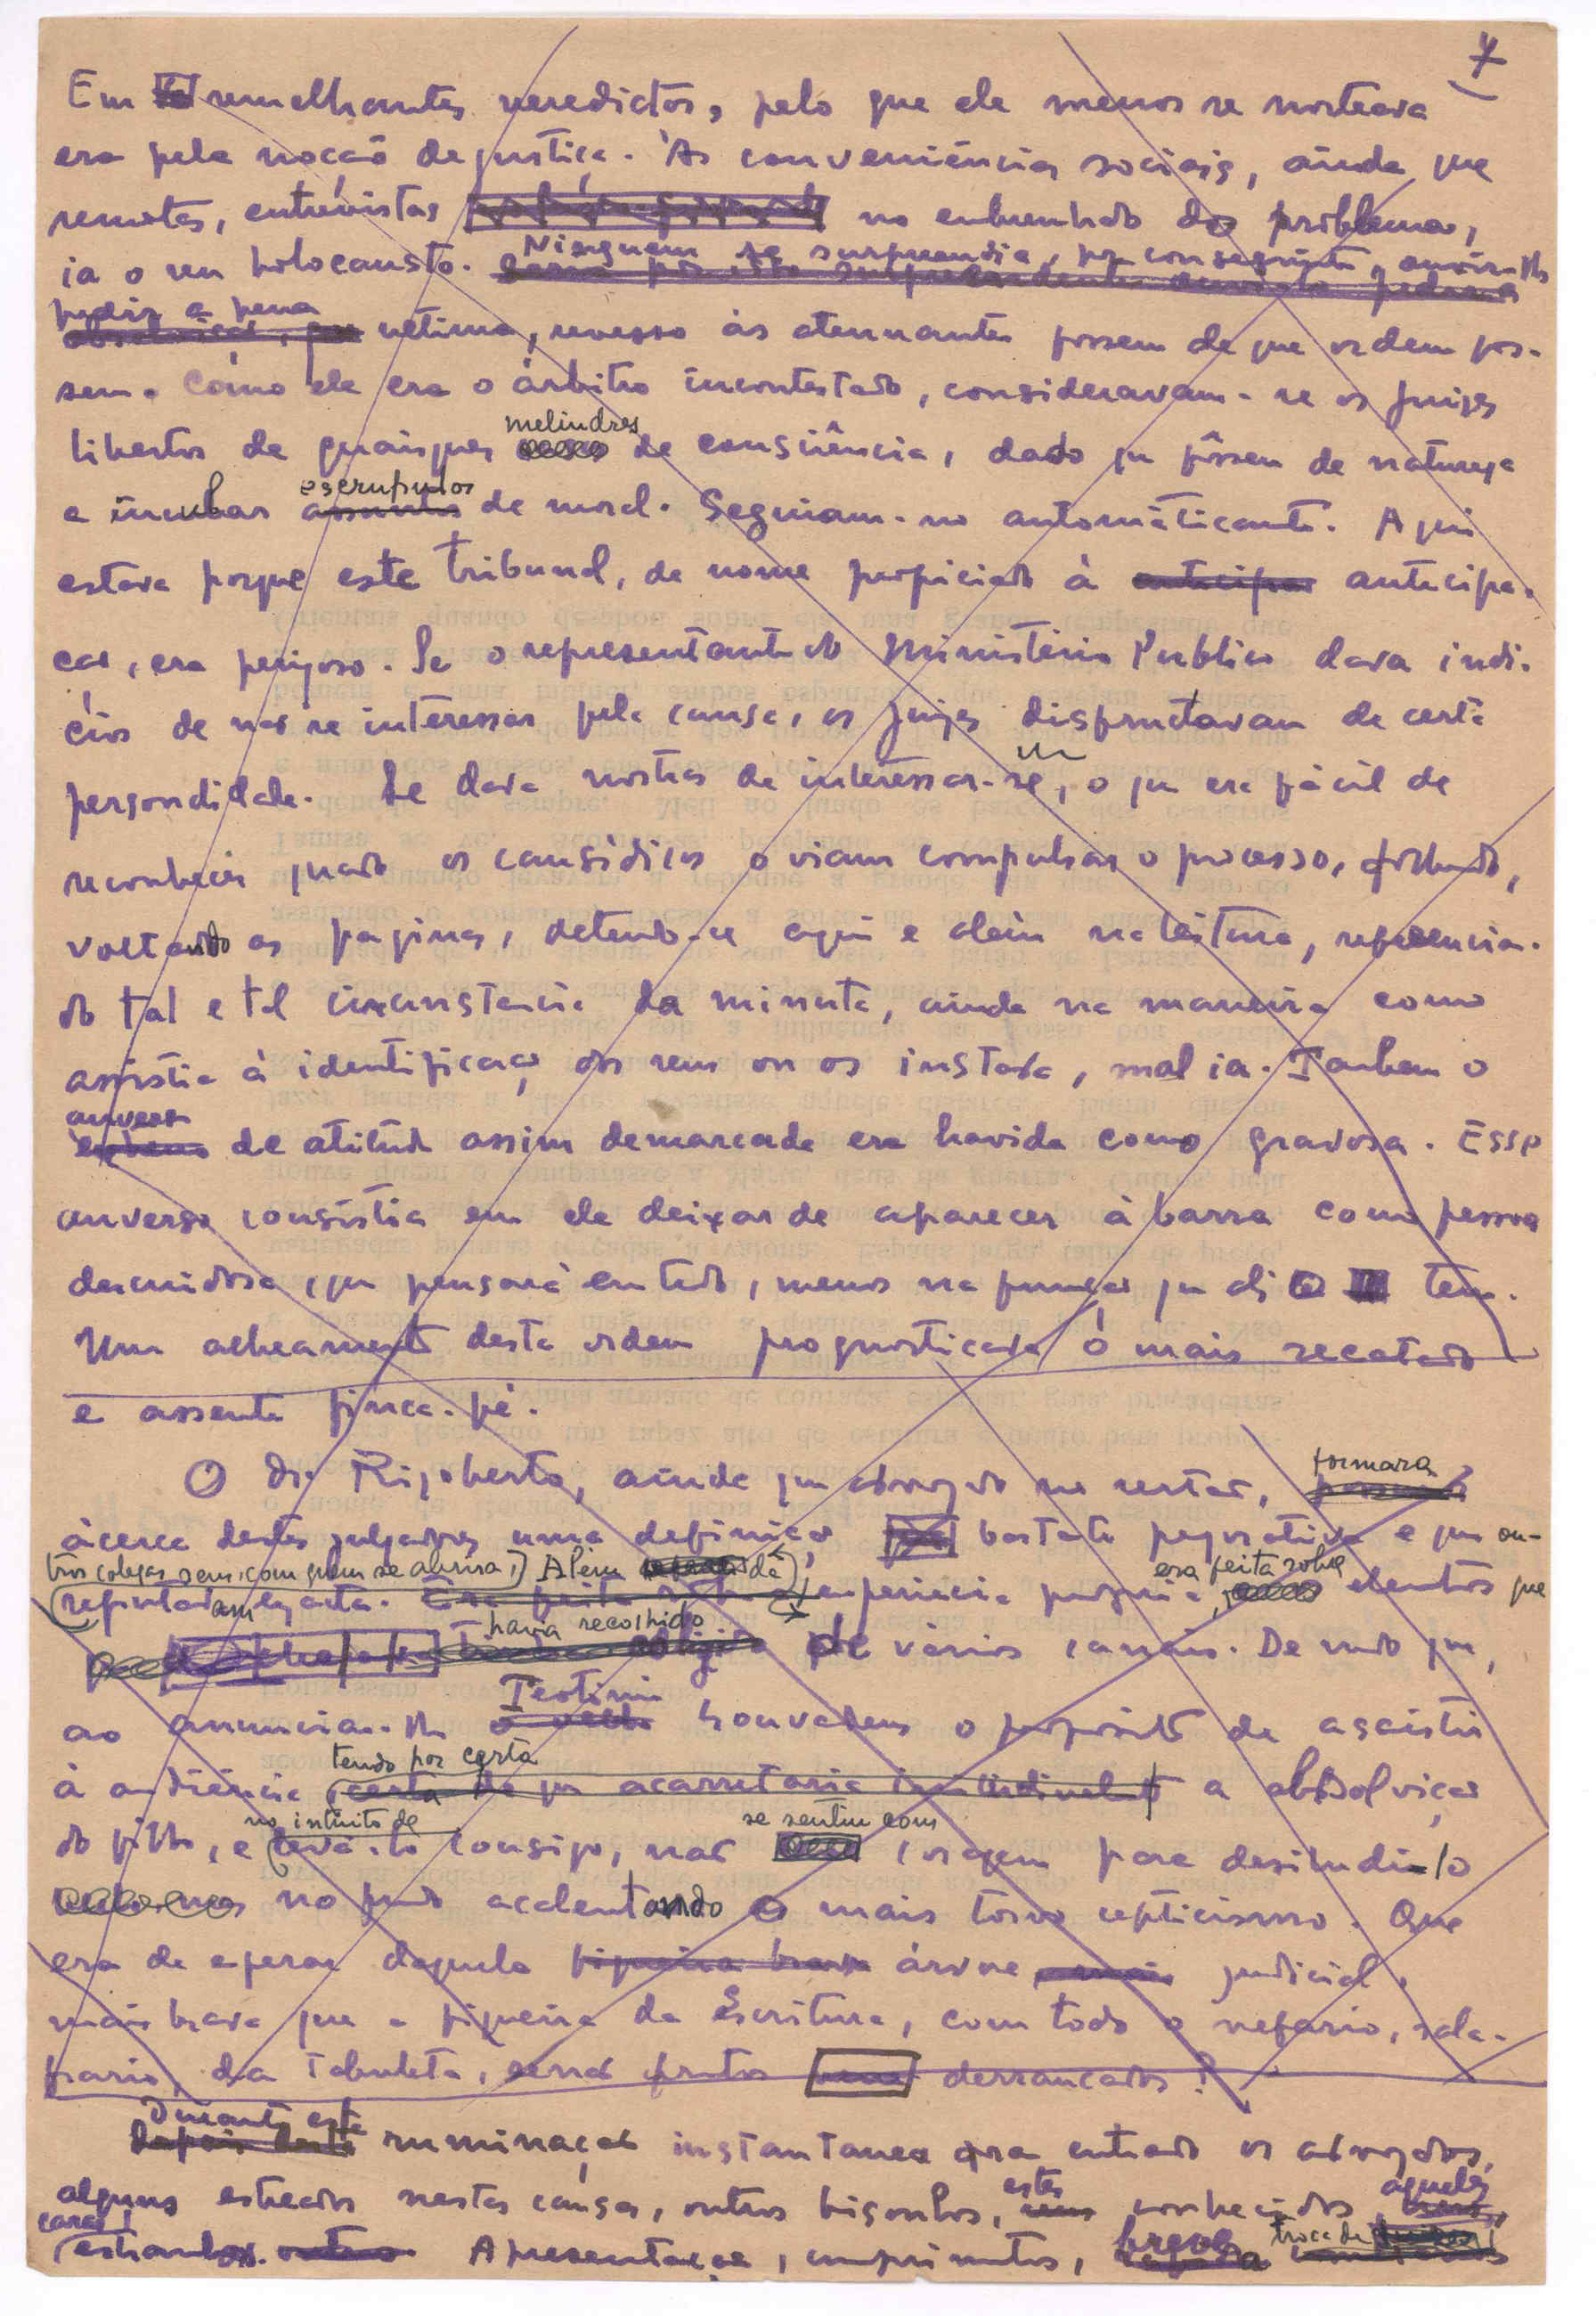 7
Em semelhantes veredictos, pelo que ele menos se norteava
era pela noção de justiça. Às conveniências sociais, ainda que
remotas, entrevistas no embrenhado dos problemas,
ia o seu holocausto. Ninguem se surpreendia, por conseguinte, ouvir-lh
pedir a pena
ultima, avesso às atenuantes fossem de que ordem fos-
sem. Como ele era o árbitro incontestado, consideravam-se os juizes
melindres
libertos de quaisquer de consciência, dado que fôssem de natureza
escrupulos
a incubar de moral. Seguiam-no automàticamente. Aqui
estava porque este tribunal, de nome propiciado à antecipa-
ção, era perigoso. Se o representante do Ministério Publico dava indi-
cios de não se interessar pela causa, os juizes disfrutavam de certa
personalidade. Se dava mostras de interessar-se, o que era fácil de
reconhecer quando os causídicos o viam compulsar o processo,
voltando as paginas, detendo-se aqui e além na leitura, referencian-
do tal e tal circunstancia da minuta, ainda na maneira como
assistia à identificação dos reus ou os instava, mal ia. Tambem o
anverso
de atitude assim demarcada era havida como gravosa. Esse
anverso consistia em ele deixar de aparecer à barra como pessoa
descuidosa, que pensará em tudo, menos na função que ali tem.
Um alheamento desta ordem prognosticava o mais recatado
e assente finca-pé.
O dr. Rigoberto, ainda que advogado no sertão, formara
àcerca destes julgadores uma definição bastante pejorativa e que ou-
tros colegas seus, com quem se abrira, Além da era feita sobre
reputavam exacta. experiencia propria, elementos que
havia recolhido
de vários canais. De modo que,
Teotónio
ao anunciar-lh Louvadeus o proposito de assistir
tendo por certa
à audiência a absolvição
no intuito de se sentiu com
do filho, e levá-lo consigo, não coragem para desiludi-lo
no fundo acalentando o mais torvo cepticismo. Que
era de esperar daquela árvore judicial,
mais brava que a figueira da Escritura, com todo o nefario, sola-
pario, da Tabuleta, senão frutos derrancados?
Durante esta
ruminação instantanea entrado os advogados,
estes aqueles
alguns estreados nestas causas, outros bisonhos, conhecidos
caras troca de
estranhos. Apresentação, cumprimentos, breve